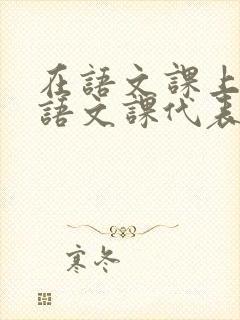 在語文課上
語文課代表
寒冬